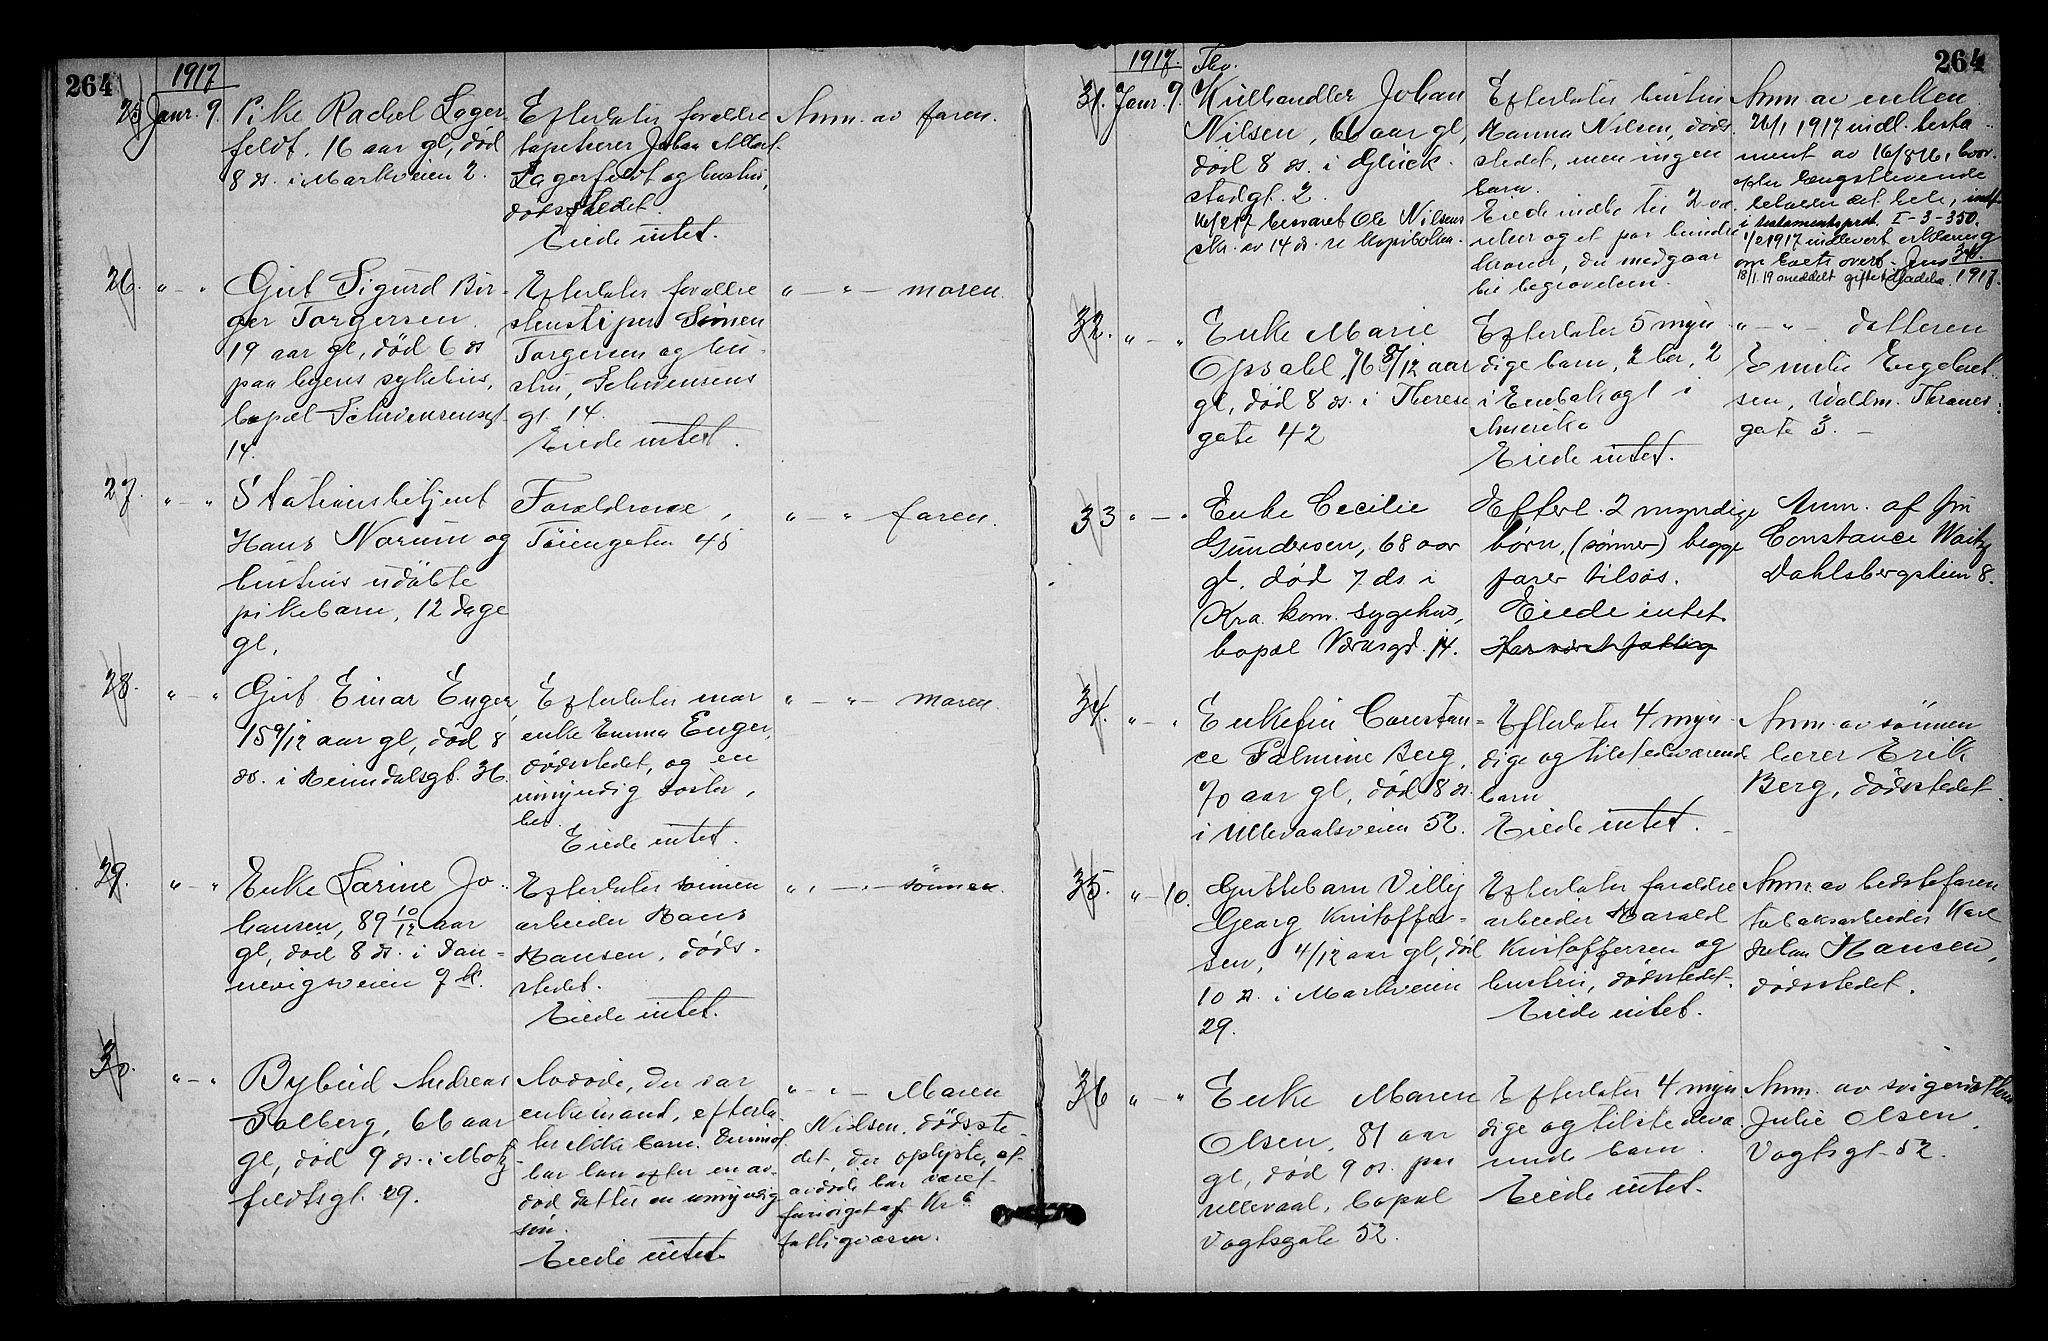 264
1917
25 Janr. 9. Pike Rachel Lager-
feldt, 16 aar gl, død
8 ds. i Markveien 2.
Efterlater forældre
tapetserer Johan Albert
Lagerfeldt og hustru,
dødsstedet.
Eiede intet.
Anm. av faren.
26. " - " Gut Sigurd Bir-
ger Torgersen
19 aar gl, død 6 ds
paa byens sykehus,
bopæl Schwensensgt.
14.
Efterlater forældre
Simen
Torgersen og hu-
stru, Schwensens
gt. 14.
Eiede intet.
" - " - moren.
27. " - " Stationsbetjent
Hans Norum og
hustrus udøbte
pikebarn, 12 dage
gl.
Forældrene,
Tøiengaten 45
" - " faren.
28. " - " Gut Einar Enger,
15 9/12 aar gl, død 8
ds. i Heimdalsgt. 36.
Efterlater mor
enke Emma Enger,
dødsstedet, og en
umyndig søster,
Eiede intet.
" - " - moren.
29. " - " Enke Larine Jo-
hansen, 89 10/12 aar
gl, død 8 ds. i Dan-
nevigsveien 7
Efterlater sønnen
arbeider Hans
Hansen, døds-
stedet.
Eiede intet.
" - " - sønnen.
30. " - " Bybud Andreas
Solberg, 66 aar
gl, død 9 ds. i Motz-
feldtsgt. 29.
Avdøde, der var
enkemand, efterla-
ter ikke barn. Derimot
har han efter en av-
død datter en umyndig
søn.
Eiede intet.
" - " - Maren
Nielsen, dødsste-
det, der oplyste, at
avdøde har været
forsørget af Kra
fattigvæsen.
264
1917. Thv.
31. Janr. 9. Kulhandler Johan
Nilsen, 61 aar gl,
død 8 ds. i Glück-
stadgt. 2.
16/2 17 besvaret Ole Nilsens
skr. av 14 ds. se kopiboken.
Efterlater hustru
Hanna Nilsen, døds-
stedet, men ingen
barn.
Eiede indbo til 2 væ-
relser og et par hundre
kroner, der medgaar
til begravelsen.
Anm. av enken.
26/1 1917 indl. testa-
ment av 16/8 16, hvor-
efter længstlevende
beholder det hele, indf.
i testamentsprot. I-3-350.
1/2 1917 indlevert erklæring
om boets overt. Jns 340
1917.
32. " - " Enke Marie
Opsahl, 76 8/12 aar
gl, død 8 ds. i Therese
gate 42
Efterlater 5 myn-
dige barn, 2 her, 2
i Enebak og 1 i
Amerika
Eiede intet.
" - " - datteren
Emilie Engebret-
sen, Waldm. Thranes-
gate 3. -
33 " - " Enke Cecilie
Gundersen, 68 aar
gl, død 7 ds i
Kra. kom. sygehus,
bopæl Vernsgd. 14.
Efterl. 2 myndige
børn, (sønner) begge
farer tilsøs.
Eiede intet.
Har været fattig
Anm. af fru
Constance Waitz
Dahlsbergstien 8.
34. " - " Enkefru Constan-
ce Palmine Berg,
70 aar gl, død 8 ds.
i Ullevaalsveien 52.
Efterlater 4 myn-
dige og tilstedeværende
barn
Eiede intet.
Anm. av sønnen
lærer Erik
Berg, dødsstedet.
35. " - 10. Guttebarn Villy
Georg Kristoffer-
sen, 4/12 aar gl, død
10 ds. i Markveien
29.
Efterlater forældre
arbeider Harald
Kristoffersen og
hustru, dødsstedet.
Eiede intet.
Anm. av bedstefaren
tobaksarbeider Karl
Johan Hansen,
dødsstedet.
36 " - " Enke Maren
Olsen, 81 aar
gl, død 9 ds. paa
Ullevaal, bopæl
Vogtsgate 52.
Efterlater 4 myn-
dige og tilstedevæ-
rende barn.
Eiede intet.
Anm. av svigerdatteren
Julie Olsen,
Vogtsgt. 52.